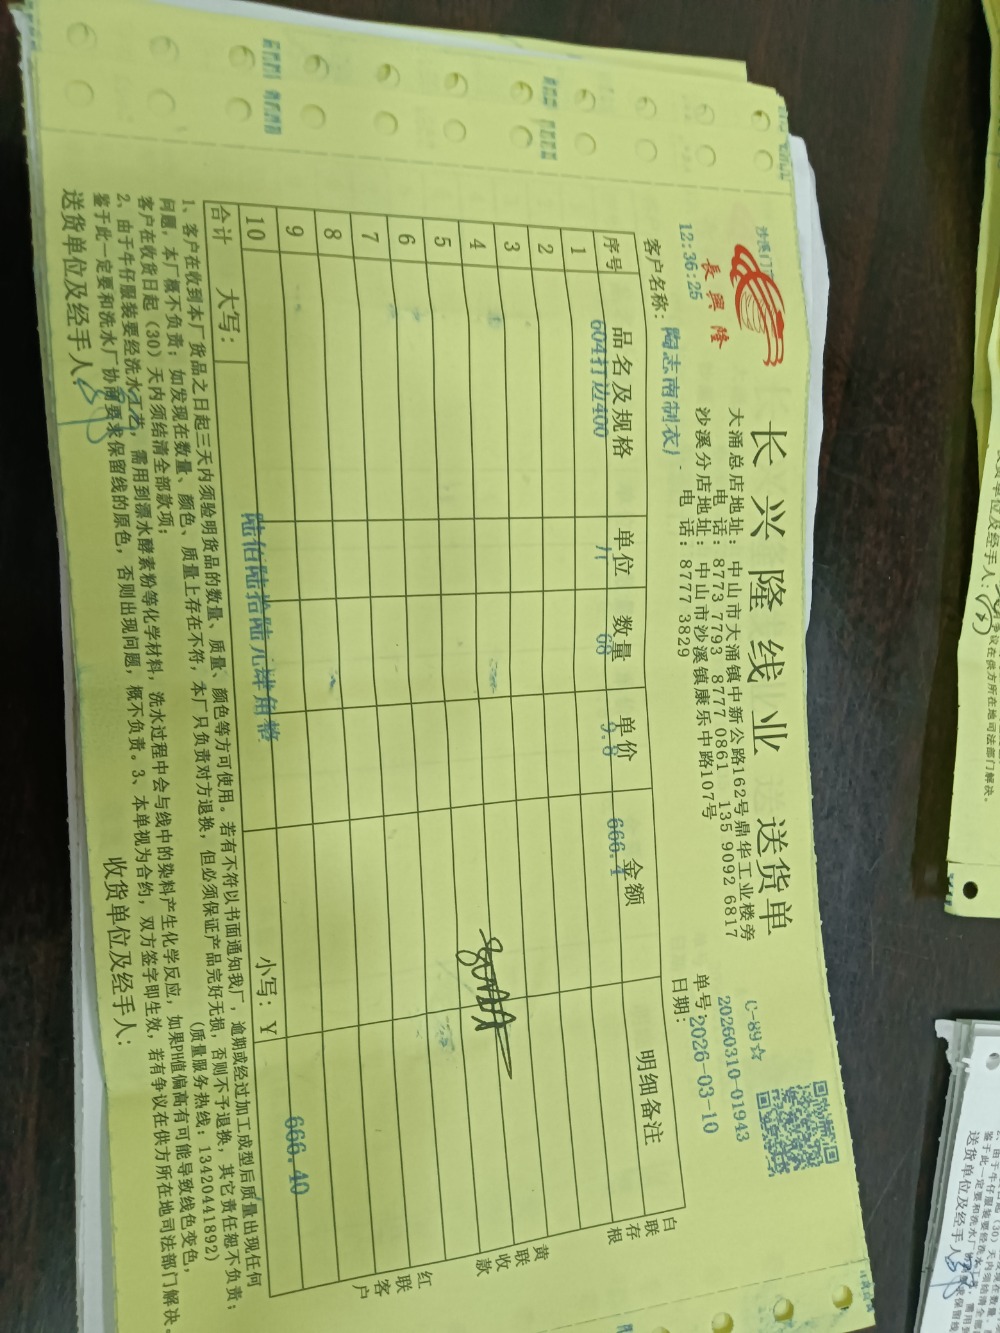 长兴隆线业 送货单
長興隆
大涌总店地址：中山市大涌镇中新公路162号鼎华工业楼旁
电话：8773 7793 8777 0861 135 9092 6817
沙溪分店地址：中山市沙溪镇康乐中路107号
电话：8777 3829
C-89☆
12:36:25
单号：20260310-01943
客户名称：陶志南制衣厂
日期：2026-03-10
序号 品名及规格 单位 数量 单价 金额 明细备注
1 604打边400 68 9.8 666.4
2
3
4
5
6
7
8
9
10
合计 大写：陆佰陆拾陆元肆角整 小写：￥ 666.40
白联存根
黄联收款
红联客户
1、客户在收到本厂货品之日起三天内须验明货品的数量、质量、颜色等方可使用。若有不符以书面通知我厂，逾期或经过加工成型后质量出现任何
问题，本厂概不负责；如发现在数量、颜色、质量上存在不符，本厂只负责对方退换，但必须保证产品完好无损，否则不予退换，其它责任恕不负责；
客户在收货日起（30）天内须结清全部款项；（质量服务热线：13420441892）
2、由于牛仔服装要经洗水工艺，需用到漂水酵素粉等化学材料，洗水过程中会与线中的染料产生化学反应，如果PH值偏高有可能导致线色变色，
鉴于此一定要和洗水厂协商要求保留线的原色，否则出现问题，概不负责。3、本单视为合约，双方签字即生效，若有争议在供方所在地司法部门解决。
送货单位及经手人：
收货单位及经手人：